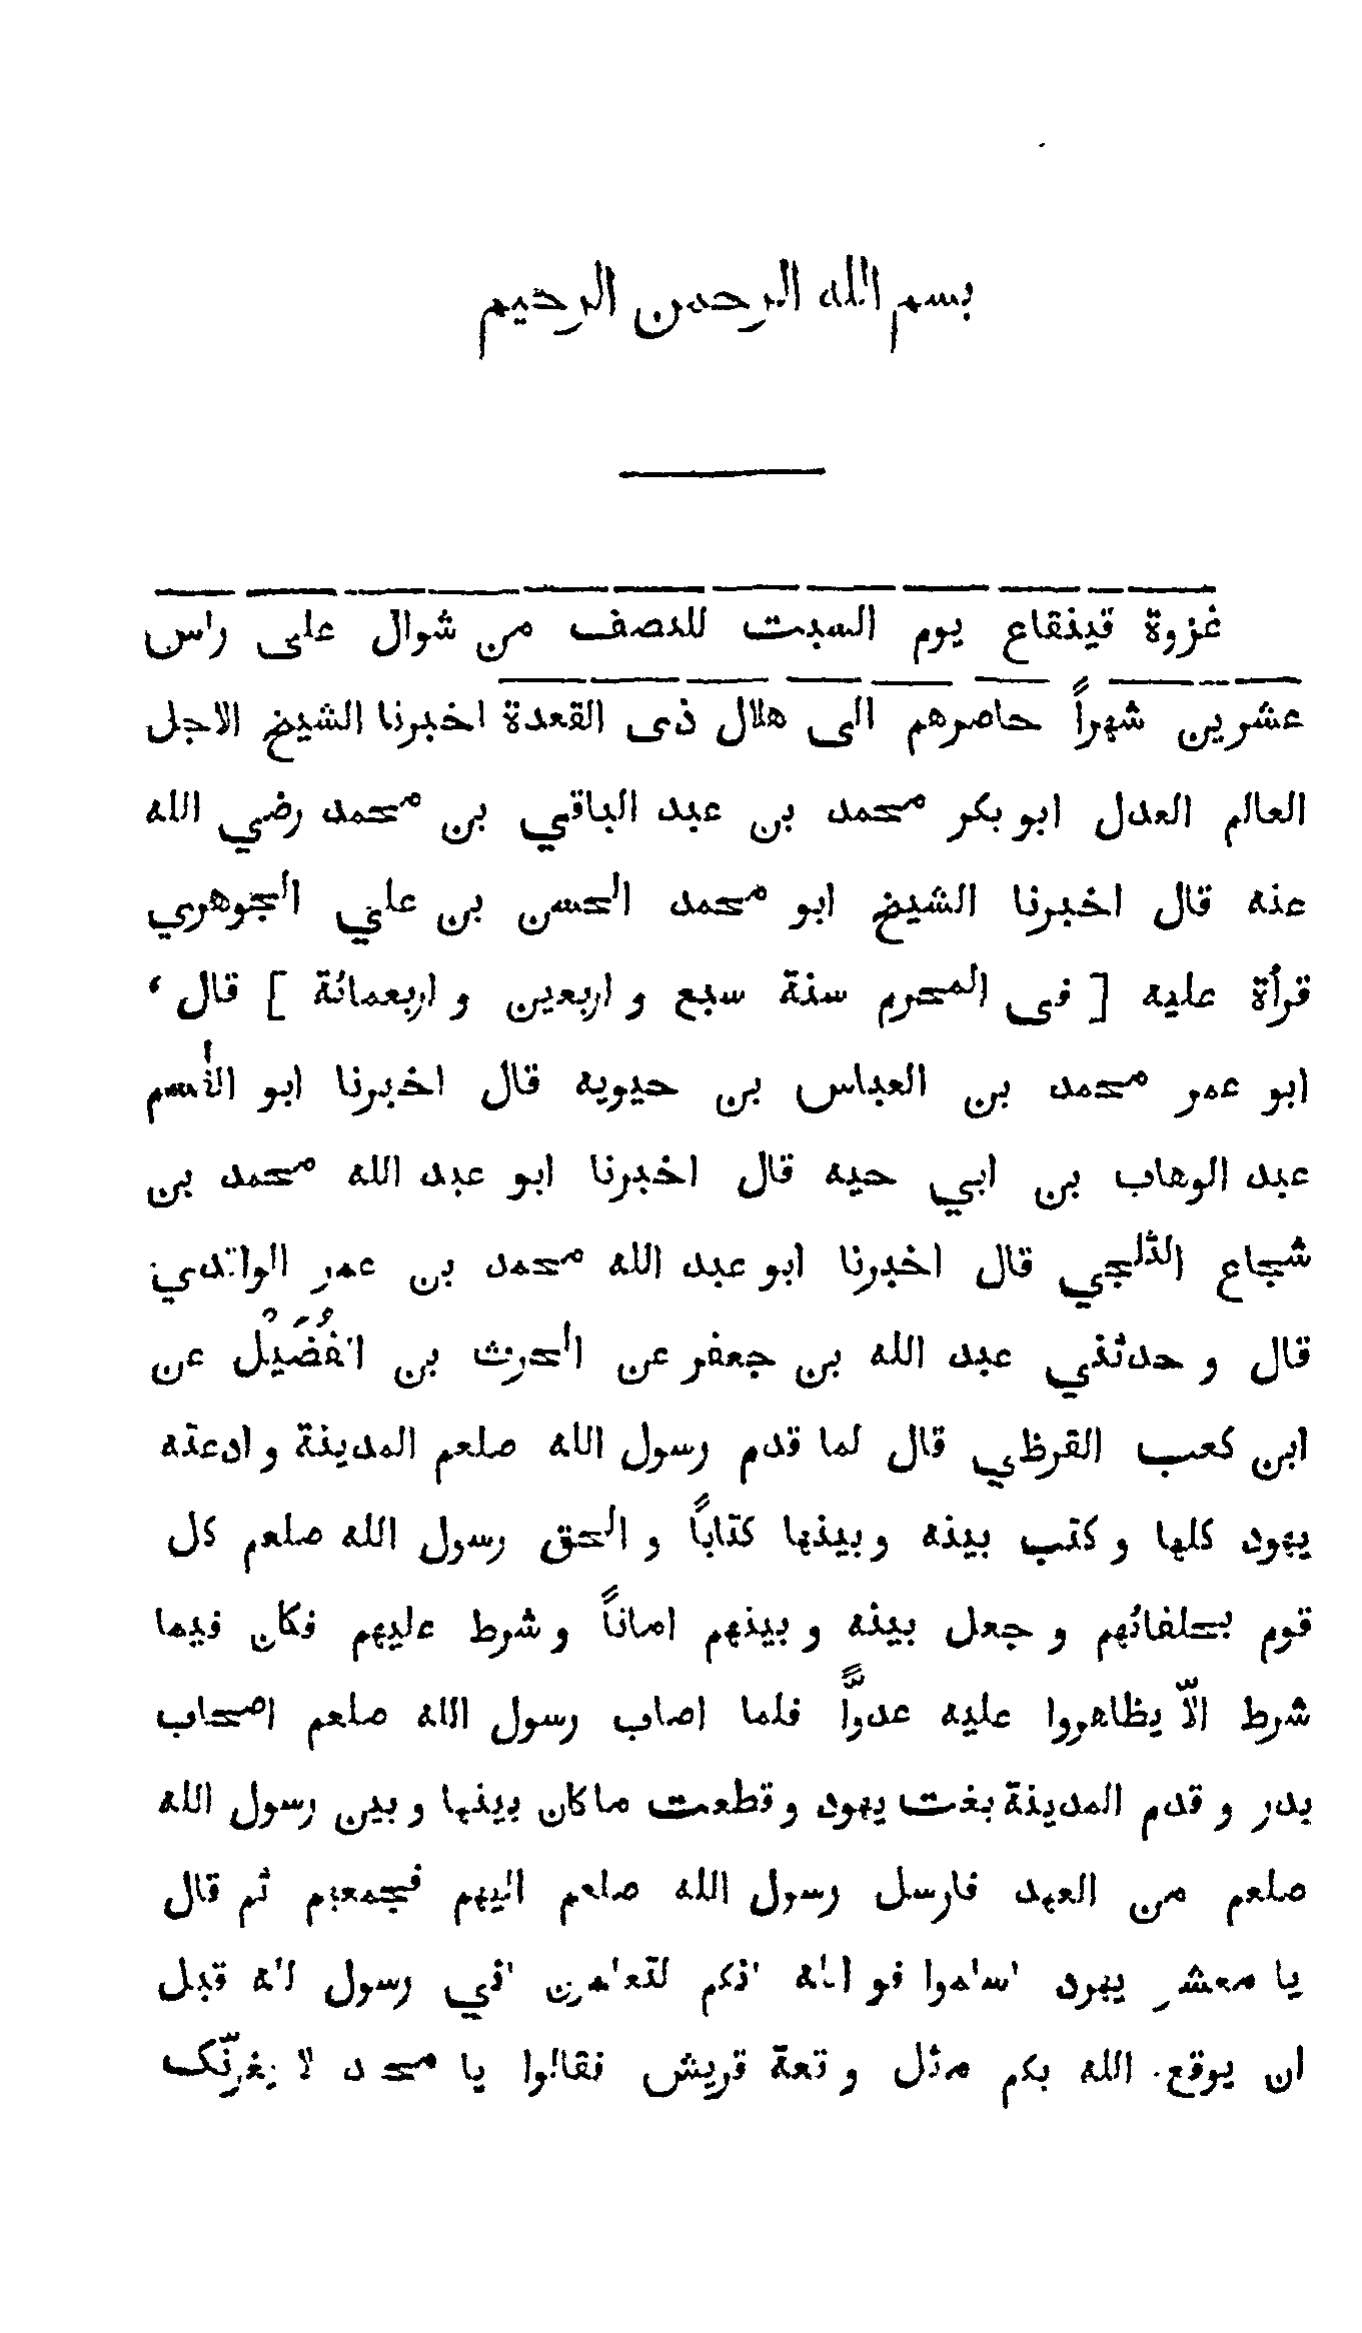 بسم الله الرحمن الرحيم
غزوة قينقاع يوم السبت للنصف من شوال على راس
عشرين شهراً حاصرهم الى هلال ذى القعدة اخبرنا الشيخ الاجل
العالم العدل ابو بكر محمد بن عبد الباقي بن محمد رضي الله
عنه قال اخبرنا الشيخ ابو محمد الحسن بن علي الجوهري
قرأة عليه [ فى المحرم سنة سبع و اربعين و اربعمائة ] قال ،
ابو عمر محمد بن العباس بن حيويه قال اخبرنا ابو
عبد الوهاب بن ابي حيه قال اخبرنا ابو عبد الله محمد بن
شجاع الثلجي قال اخبرنا ابو عبد الله محمد بن عمر الواقدي
قال و حدثني عبد الله بن جعفر عن الحرث بن الفُضَيْل عن
ابن كعب القرظي قال لما قدم رسول الله صلعم المدينة و ادعته
يهود كلها و كتب بينه و بينها كتاباً و الحق رسول الله صلعم كل
قوم بحلفائهم و جعل بينه و بينهم اماناً و شرط عليهم فكان فيما
شرط الّا يظاهروا عليه عدوًّا فلما اصاب رسول الله صلعم اصحاب
بدر و قدم المدينة بغت يهود و قطعت ما كان بينها و بين رسول الله
صلعم من العهد فارسل رسول الله صلعم اليهم فجمعهم ثم قال
يا معشر يهود اسلموا فو الله انكم لتعلمون اني رسول الله قبل
ان يوقع الله بكم مثل وقعة قريش فقالوا يا محمد لا يغرنّك